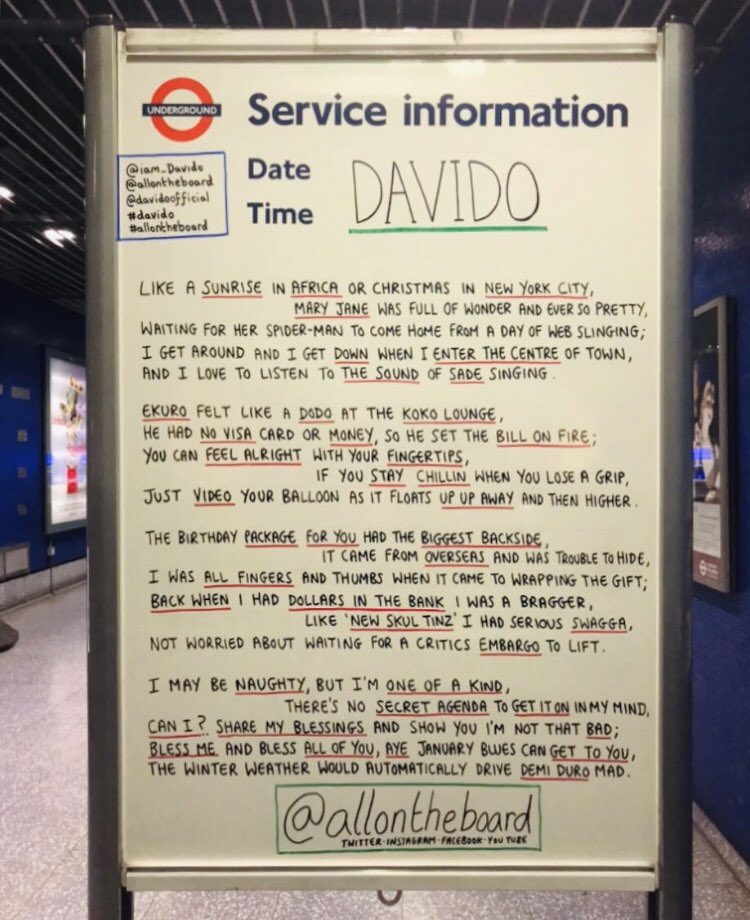 UNDERGROUND
Service information
@iam_Davido
@allontheboard
@davidoofficial
#davido
#allontheboard
Date
Time
DAVIDO
LIKE A SUNRISE IN AFRICA OR CHRISTMAS IN NEW YORK CITY,
MARY JANE WAS FULL OF WONDER AND EVER SO PRETTY,
WAITING FOR HER SPIDER-MAN TO COME HOME FROM A DAY OF WEB SLINGING;
I GET AROUND AND I GET DOWN WHEN I ENTER THE CENTRE OF TOWN,
AND I LOVE TO LISTEN TO THE SOUND OF SADE SINGING.
EKURO FELT LIKE A DODO AT THE KOKO LOUNGE,
HE HAD NO VISA CARD OR MONEY, SO HE SET THE BILL ON FIRE;
YOU CAN FEEL ALRIGHT WITH YOUR FINGERTIPS,
IF YOU STAY CHILLIN WHEN YOU LOSE A GRIP,
JUST VIDEO YOUR BALLOON AS IT FLOATS UP UP AWAY AND THEN HIGHER.
THE BIRTHDAY PACKAGE FOR YOU HAD THE BIGGEST BACKSIDE,
IT CAME FROM OVERSEAS AND WAS TROUBLE TO HIDE,
I WAS ALL FINGERS AND THUMBS WHEN IT CAME TO WRAPPING THE GIFT;
BACK WHEN I HAD DOLLARS IN THE BANK I WAS A BRAGGER,
LIKE 'NEW SKUL TINZ' I HAD SERIOUS SWAGGA,
NOT WORRIED ABOUT WAITING FOR A CRITICS EMBARGO TO LIFT.
I MAY BE NAUGHTY, BUT I'M ONE OF A KIND,
THERE'S NO SECRET AGENDA TO GET IT ON IN MY MIND,
CAN I? SHARE MY BLESSINGS AND SHOW YOU I'M NOT THAT BAD;
BLESS ME AND BLESS ALL OF YOU, AYE JANUARY BLUES CAN GET TO YOU,
THE WINTER WEATHER WOULD AUTOMATICALLY DRIVE DEMI DURO MAD.
@allontheboard
TWITTER-INSTAGRAM-FACEBOOK-YOU TUBE